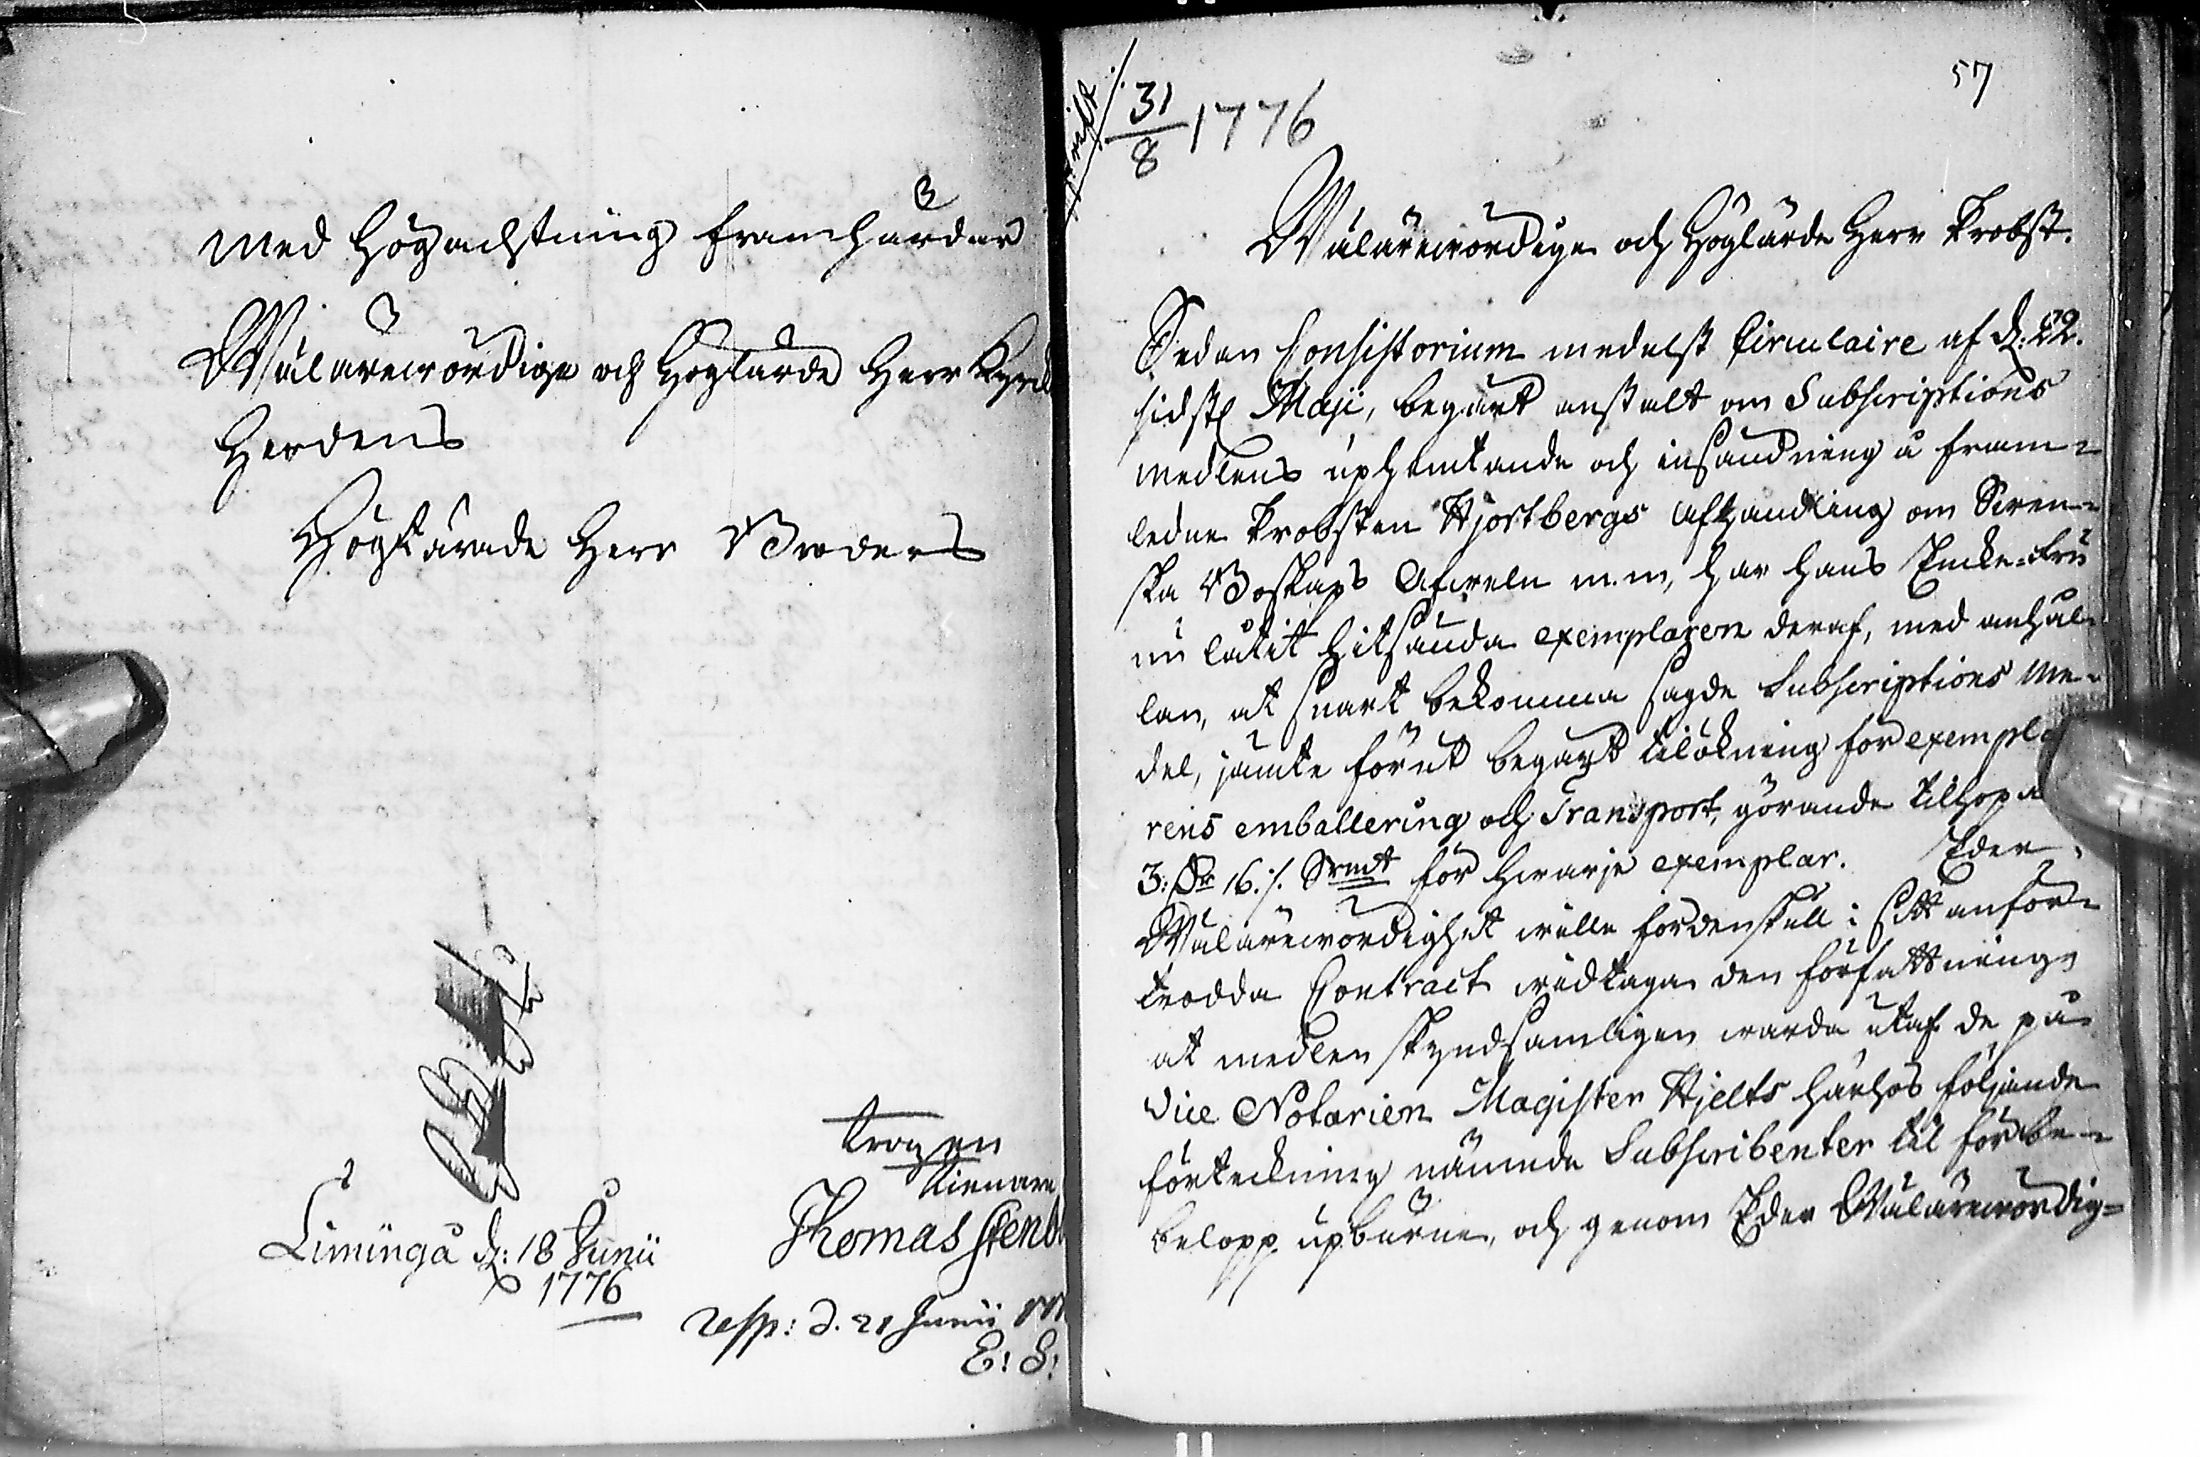 med högachtning framhärdar
Wälärewördige och Höglärde Herr Kyrck
Herdens
Höglärade Herr Broders
trogen
tienare
Thomas Stenb
Limingå d: 18 Junii
1776
resp: d. 21 Junii
E: S:
57
31/8 1776
Wälärewördige och Höglärde Herr Probst.
Sedan Consistorium medelst Circulaire af d: 22.
sidstl Maji, begärt anstalt om Subscriptions
medlens uphemtande och insändning å fram-
ledne Probsten Hjortbergs Afhandling om Swen-
ska Boskaps Afweln m.m, har hans Encke-Fru
nu låtit hitsända exemplaren deraf, med anhål-
lan, at snart bekomma sagde Subscriptions me-
del, jämte förut begärt tilökning för exempla
rens emballering och Transport, görande tilhopa
3: Dr 16 ./. Srmt för hwarje exemplar. Eder
Wälärewördighet wille fördenskull i sitt anför-
trodda Contract widtaga den författning,
at medlen skyndsamligen warda utaf de på
Vice Notarien Magister Hjelts härhos följande
förteckning nämnde Subscribenter til förbe-
belopp upburne, och genom Eder Wälärewördig=